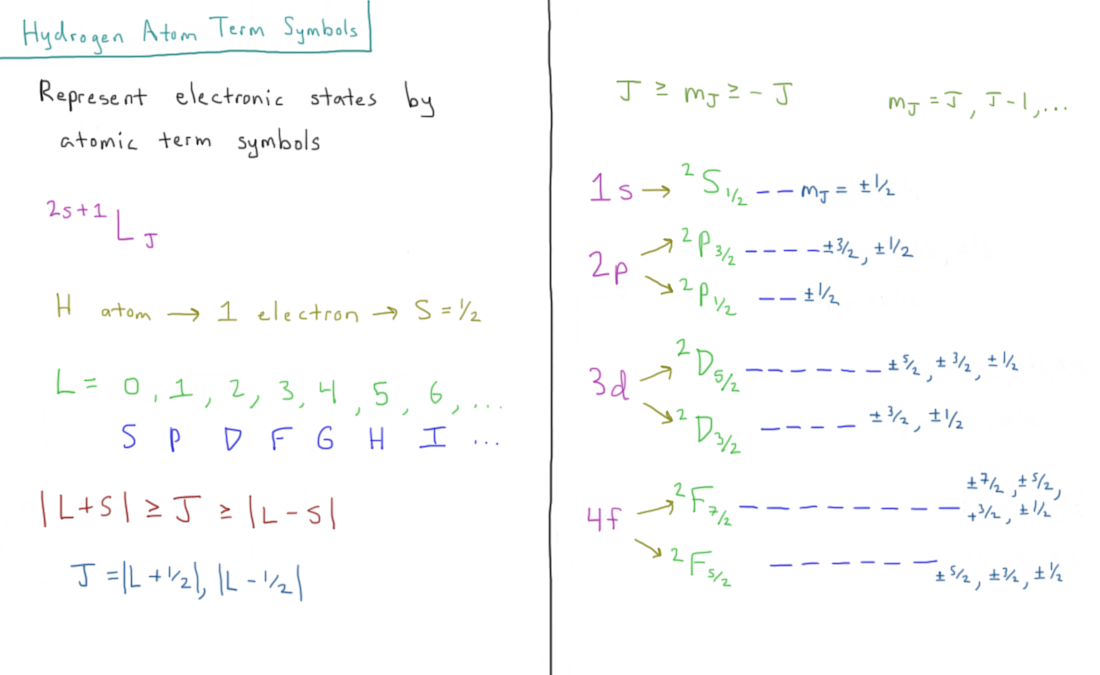 Hydrogen Atom Term Symbols
Represent electronic states by
atomic term symbols
²ˢ⁺¹L_J
H atom → 1 electron → S = 1/2
L = 0, 1, 2, 3, 4, 5, 6, ...
S P D F G H I ...
|L+S| ≥ J ≥ |L-S|
J = |L + 1/2|, |L - 1/2|
J ≥ m_J ≥ - J
m_J = J, J-1, ...
1s → ²S_1/2 -- m_J = ± 1/2
2p
↗ ²P_3/2 ---- ± 3/2, ± 1/2
↘ ²P_1/2 -- ± 1/2
3d
↗ ²D_5/2 ------ ± 5/2, ± 3/2, ± 1/2
↘ ²D_3/2 ---- ± 3/2, ± 1/2
4f
↗ ²F_7/2 -------- ± 7/2, ± 5/2,
+ 3/2, ± 1/2
↘ ²F_5/2 ------ ± 5/2, ± 3/2, ± 1/2